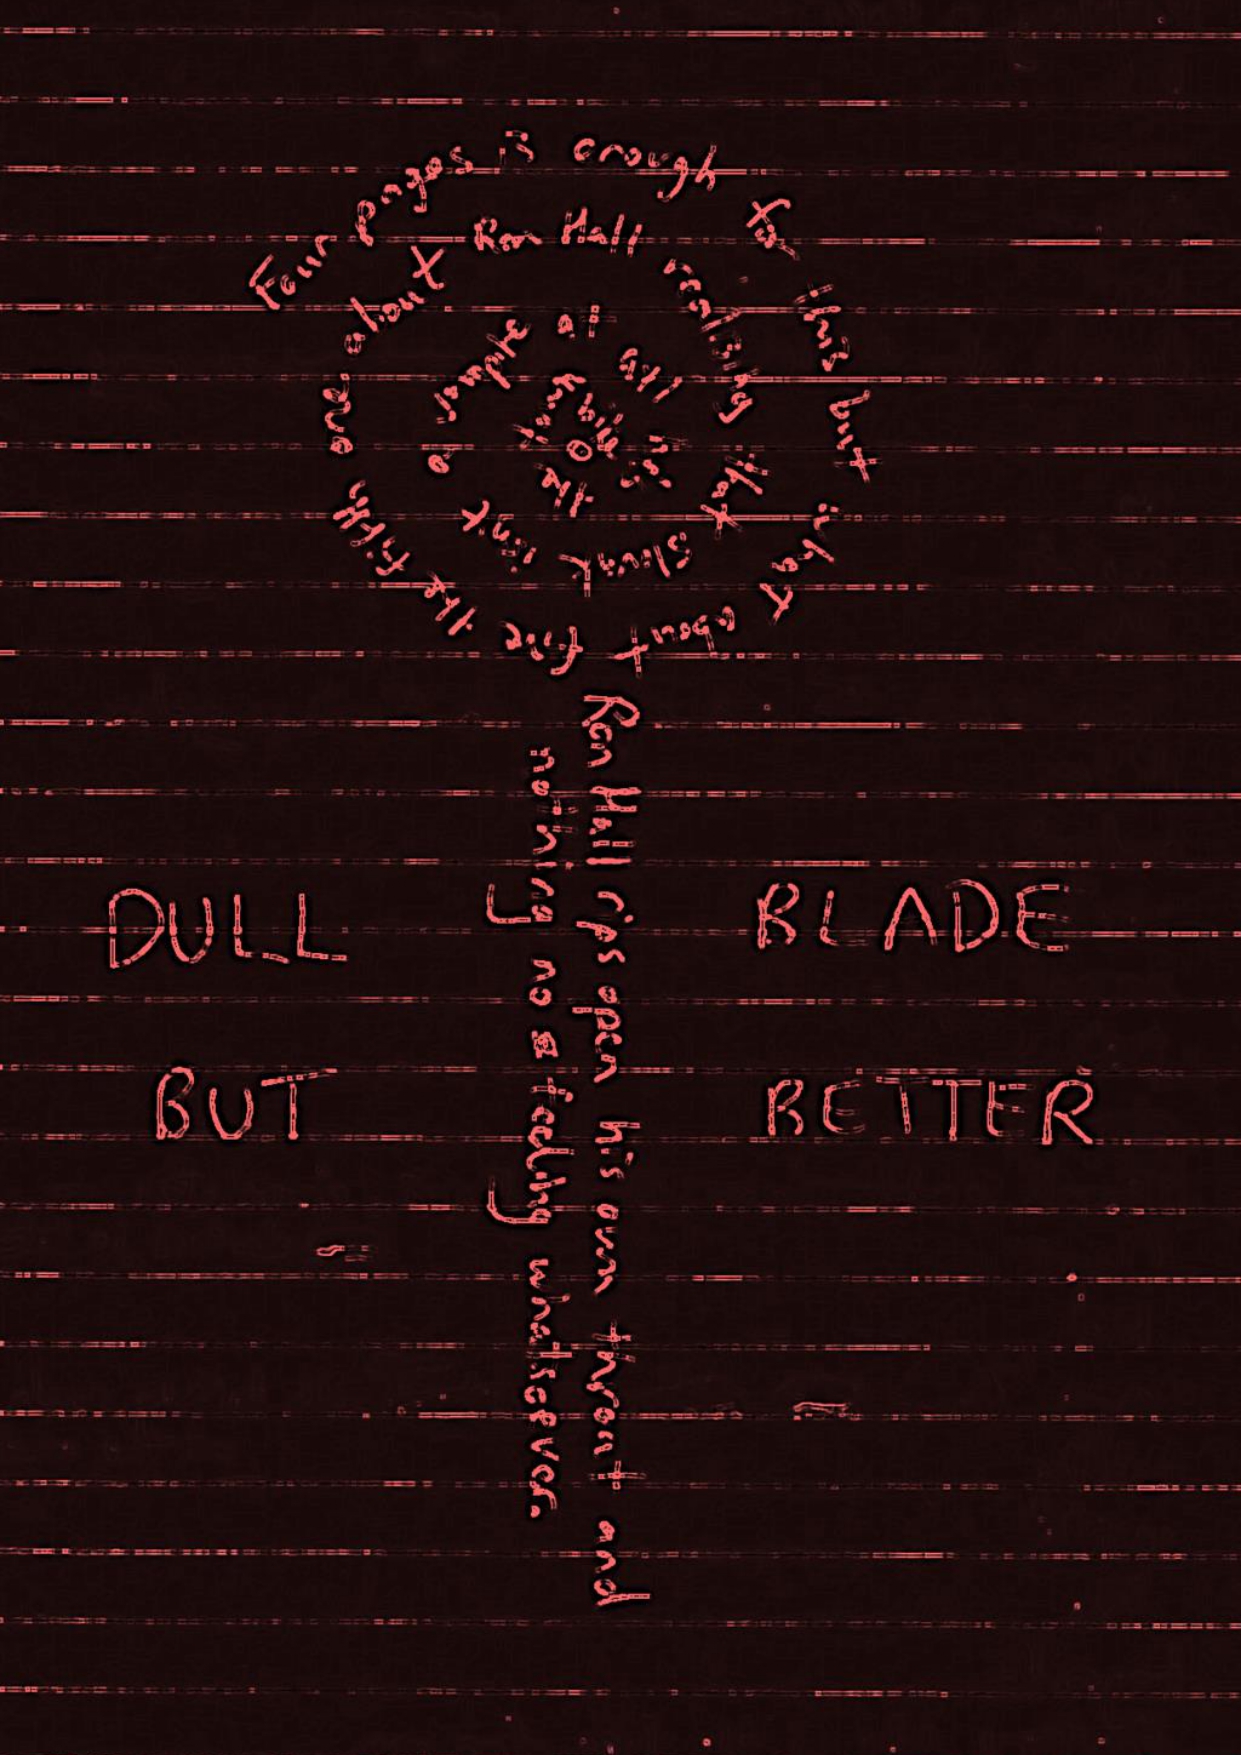 Four pages is enough for this but what about five the fifth one about Ron Hall realising that isn't a at all it's the
Ron Hall rips open his own throat and
nothing no feeling whatsoever.
DULL BLADE
BUT BETTER